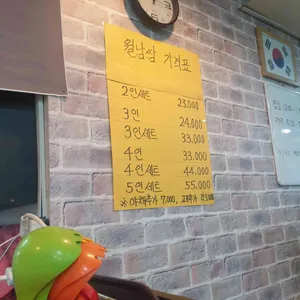 월남쌈 가격표
2인세트 23.000
3인 24.000
3인세트 33.000
4인 33.000
4인세트 44.000
5인세트 55.000
※ 야채추가 7,000, 고기추가